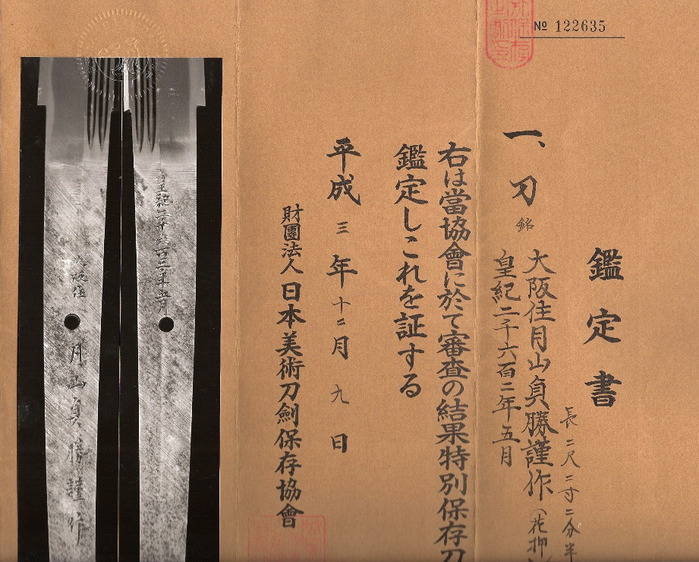 № 122635
鑑定書
一、刀 銘
大阪住月山貞勝謹作(花押
皇紀二千六百二年五月
長二尺二寸二分半
右は當協會に於て審査の結果特別保存刀
鑑定しこれを証する
平成三年十二月九日
財團法人日本美術刀劍保存協會
月山貞勝謹作